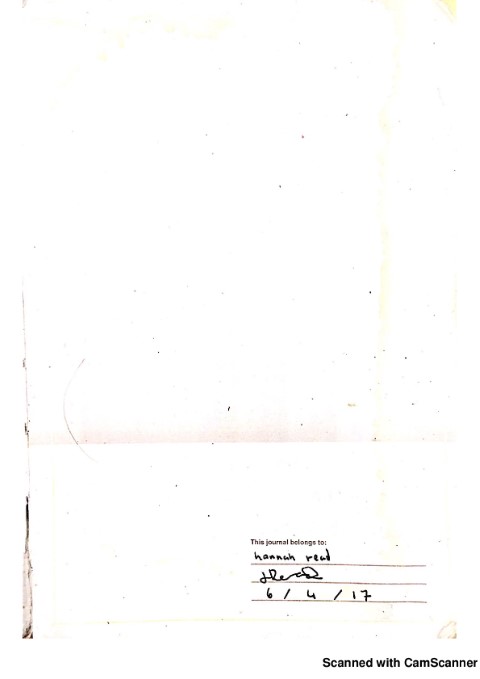 This journal belongs to:
hannah read
HRead
6 / 4 / 17
Scanned with CamScanner